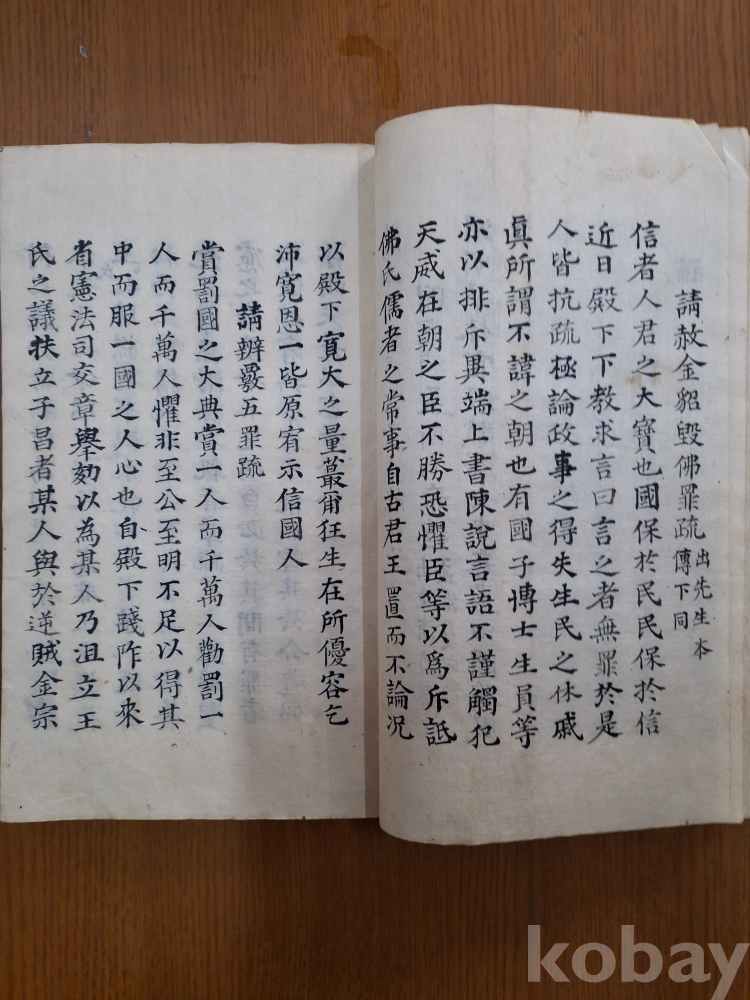 請赦金貂毀佛罪疏 出先生本傳下同
信者人君之大寶也國保於民民保於信
近日殿下下教求言曰言之者無罪於是
人皆抗疏極論政事之得失生民之休戚
眞所謂不諱之朝也有國子博士生員等
亦以排斥異端上書陳說言語不謹觸犯
天威在朝之臣不勝恐懼臣等以爲斥詆
佛氏儒者之常事自古君王置而不論况
以殿下寛大之量蕞爾狂生在所優容乞
沛寛恩一皆原宥示信國人
請辨覈五罪疏
賞罰國之大典賞一人而千萬人勸罰一
人而千萬人懼非至公至明不足以得其
中而服一國之人心也自殿下踐阼以來
省憲法司交章擧劾以為某人乃沮立王
氏之議扶立子昌者某人與於逆賊金宗
kobay